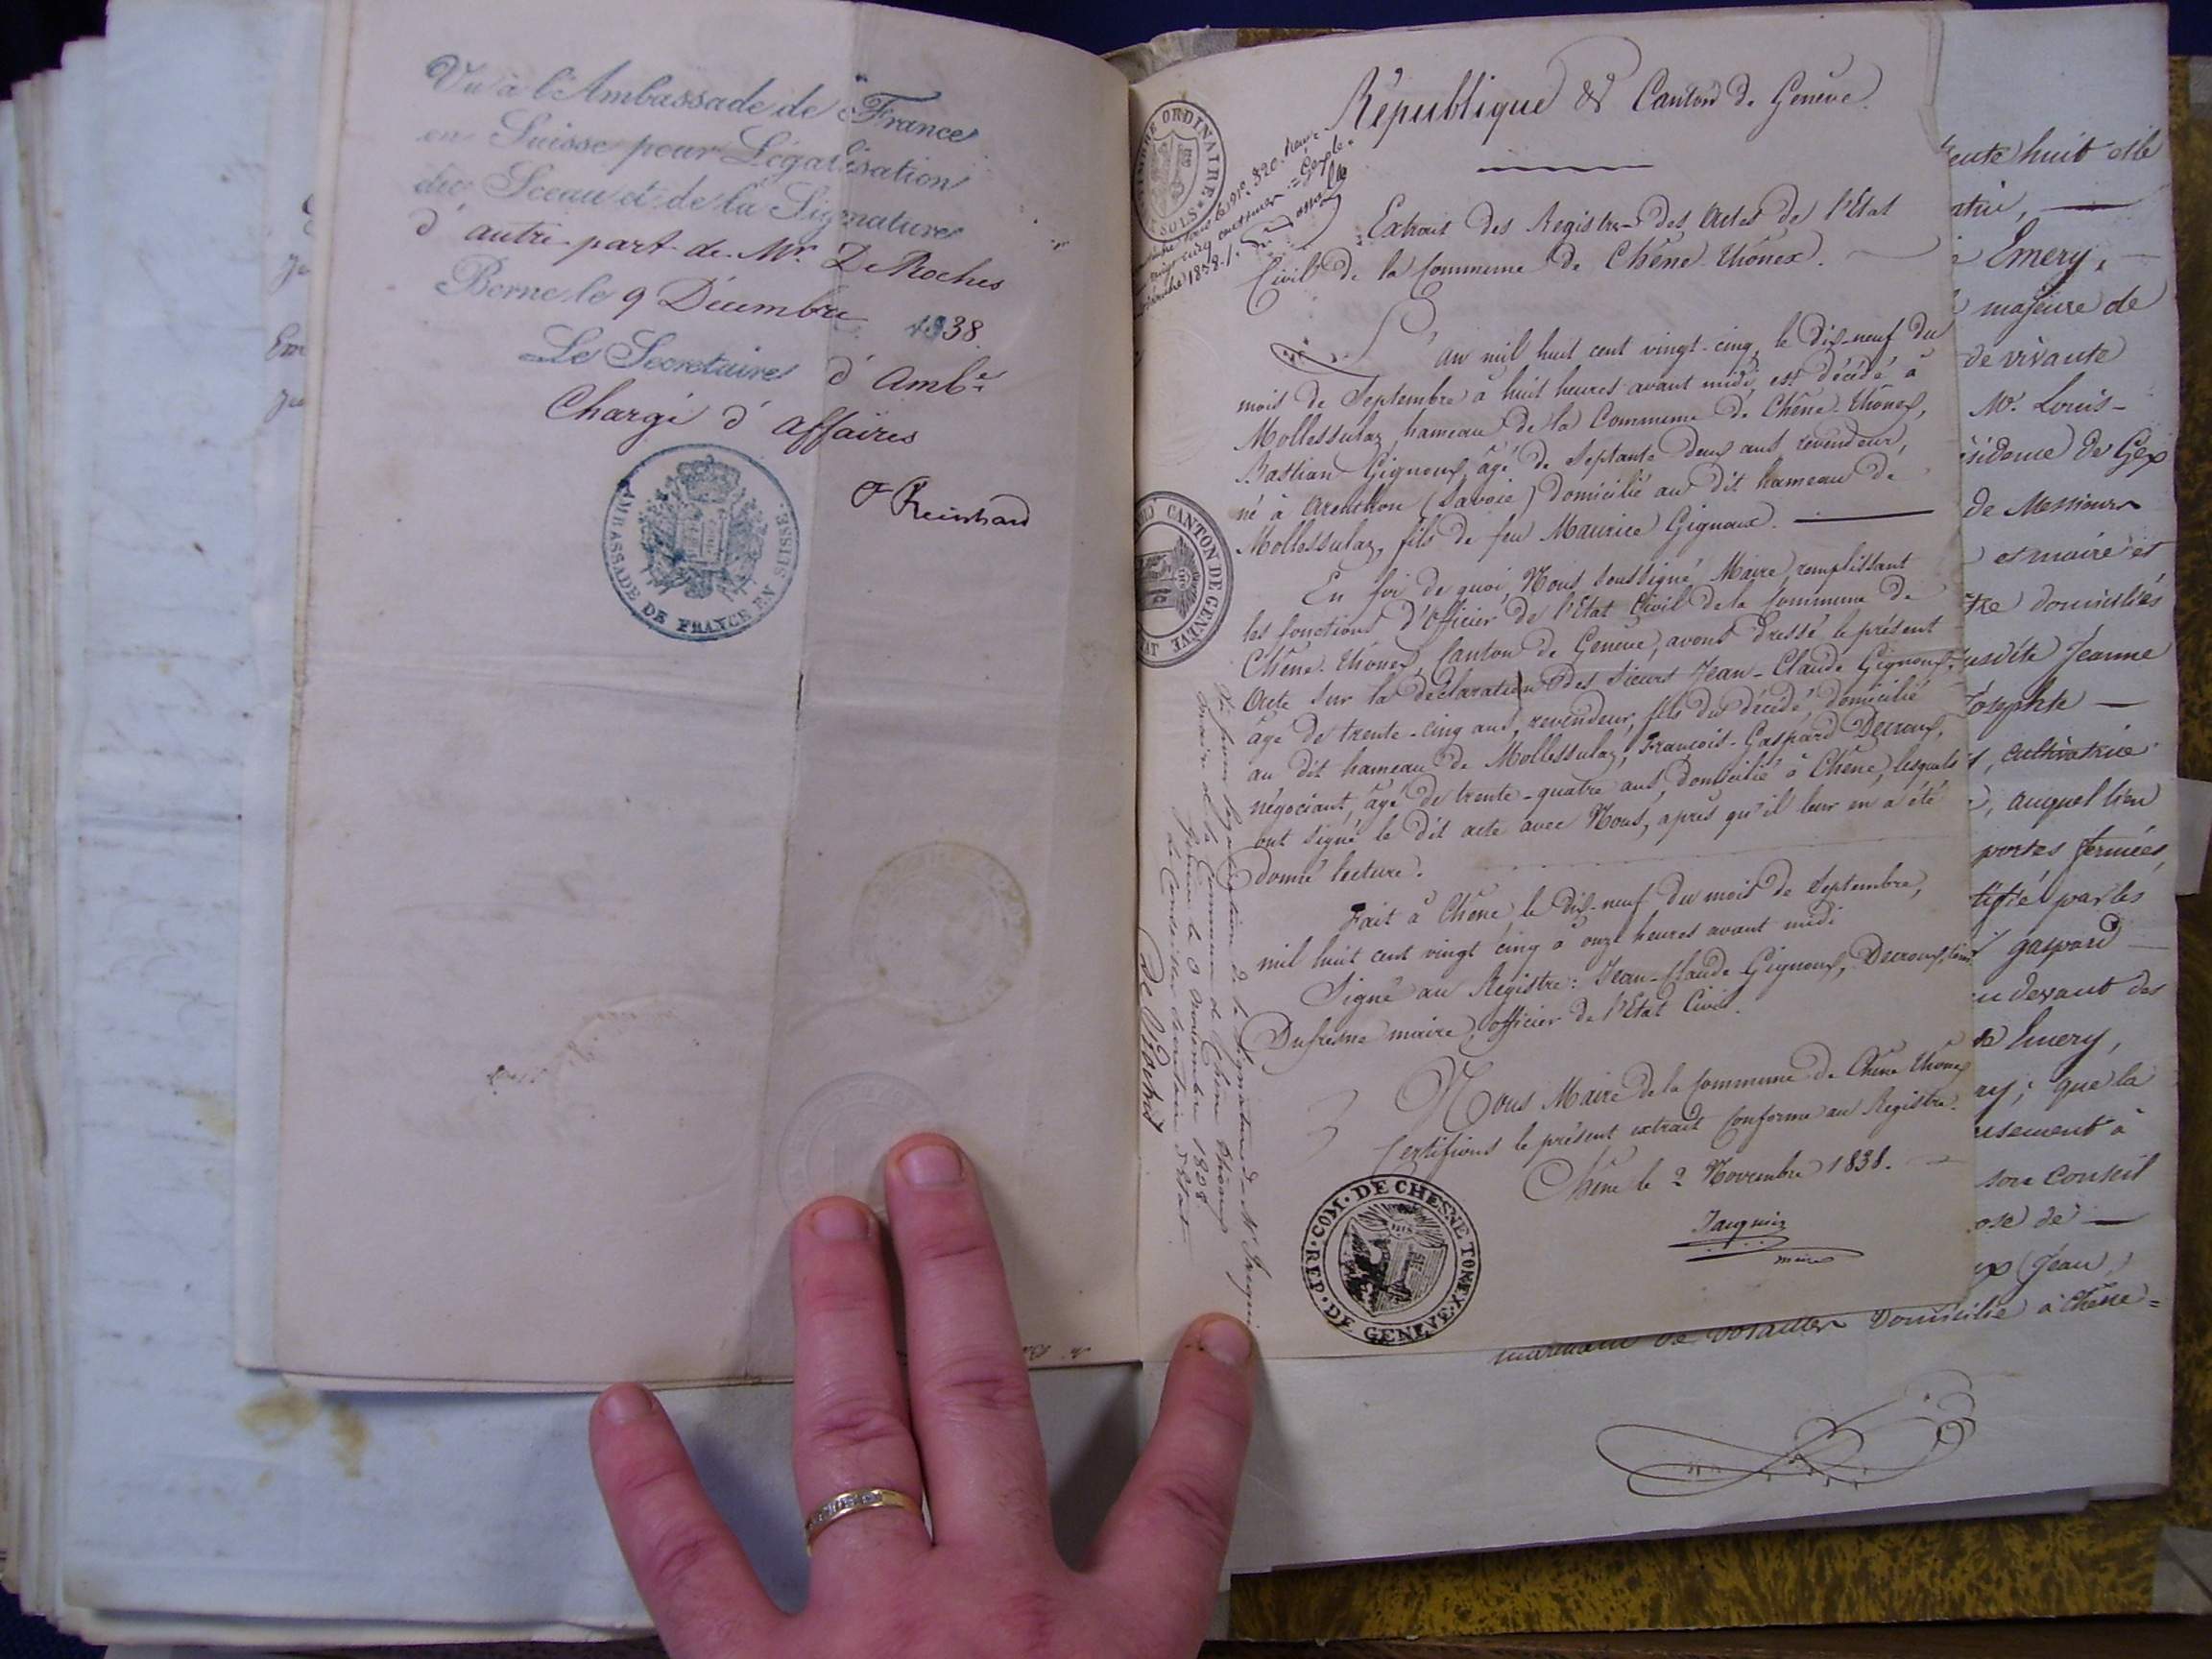 Vu à l'Ambassade de France
en Suisse pour Légalisation
du Sceau et de la Signature
d'autre part de Mr. De Roches
Berne le 9 Décembre 1838.
Le Secretaire d'Ambe.
Chargé d'affaires
F Reinhard
AMBASSADE DE FRANCE EN SUISSE.
TIMBRE ORDINAIRE
SOLS
République & Canton de Genève.
Extrait des Registres des Actes de l'Etat
Civil de la Commune de Chêne-Thônex.
L'an mil huit cent vingt-cinq, le dix-neuf du
mois de Septembre à huit heures avant midi, est décédé à
Mollessulaz, hameau de la Commune de Chêne-Thônex,
Bastian Gignoux, âgé de septante deux ans revendeur,
né à Arenthon (Savoie) domicilié au dit hameau de
Mollessulaz, fils de feu Maurice Gignoux.
En foi de quoi, Nous soussigné Maire remplissant
les fonctions d'Officier de l'Etat Civil de la Commune de
Chêne-Thônex, Canton de Genève, avons dressé le présent
Acte sur la déclaration des sieurs Jean-Claude Gignoux,
âgé de trente-cinq ans, revendeur, fils du décédé, domicilié
au dit hameau de Mollessulaz, François-Gaspard Decroux,
négociant, âgé de trente-quatre ans, domicilié à Chêne, lesquels
ont signé le dit acte avec Nous, après qu'il leur en a été
donné lecture.
Fait à Chêne le dix-neuf du mois de Septembre,
mil huit cent vingt cinq à onze heures avant midi
Signé au Registre: Jean-Claude Gignoux, Decroux,
Dufresne maire, officier de l'Etat Civil.
Nous Maire de la Commune de Chêne Thônex
Certifions le présent extrait conforme au Registre.
Chêne le 2 Novembre 1838.
Jaquin
maire
COM. DE CHESNE TONEX. REP. DE GENEVE.
CANTON DE GENEVE
Vu pour légalisation de la signature de Mr Jaquin
maire de la Commune de Chêne Thonex
Genève le Novembre 1838
Le Conseiller Secrétaire d'Etat
De Roches
trente huit et le
Emery,
majeure de
de vivante
Mr. Louis-
de Gex
de Messieurs
et maire et
domiciliés
susdite Jeanne
Josephte
cultivatrice
auquel lieu
portes fermées,
par les
gaspard
devant des
Emery,
que la
à
son conseil
de
(Jean,)
domicilié à Chêne=